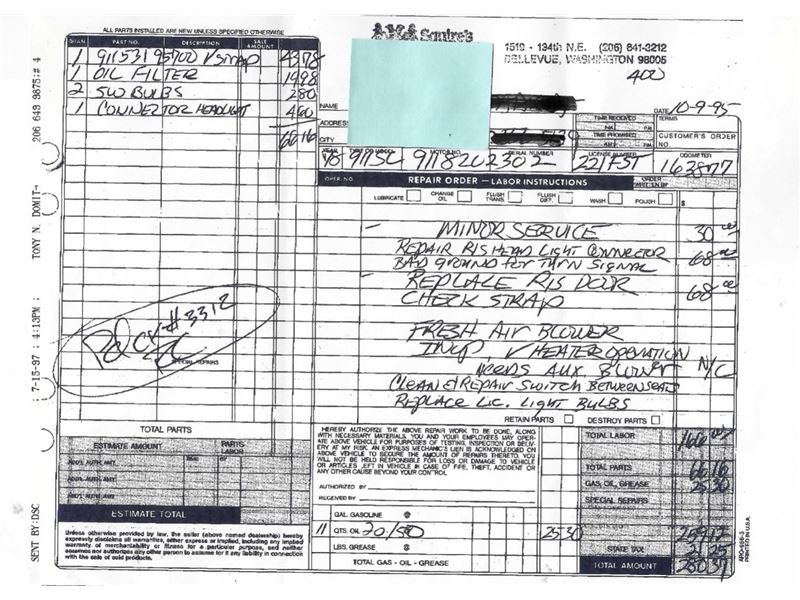 ALL PARTS INSTALLED ARE NEW UNLESS SPECIFIED OTHERWISE
QUAN. PART NO. DESCRIPTION SALE AMOUNT
1 OIL FILTER 1498
2 5W BULBS 280
1 CONNECTOR HEADLIGHT 460
6616
Squire's
1519 - 134th N.E. (206) 641-3212
BELLEVUE, WASHINGTON 98005
400
NAME
ADDRESS
CITY
DATE 10-9-95
TIME RECEIVED
AM PM
TIME PROMISED
AM PM
TERMS
CUSTOMER'S ORDER NO.
YEAR TYPE OR MODEL MOTOR NO. SERIAL NUMBER LICENSE NUMBER ODOMETER
78 911SC 9118202302 221FST 163877
OPER. NO. REPAIR ORDER — LABOR INSTRUCTIONS ORDER WRITTEN BY
LUBRICATE CHANGE OIL FLUSH TRANS. FLUSH DIFF. WASH POLISH $
- MINOR SERVICE 30 00
REPAIR R/S HEAD LIGHT CONNECTOR
BAD GROUND FOR TURN SIGNAL 68 00
- REPLACE R/S DOOR
CHECK STRAP 68 00
FRESH AIR BLOWER
INOP, ✓ HEATER OPERATION
NEEDS AUX. BLOWER N/C
CLEAN & REPAIR SWITCH BETWEEN SEATS
REPLACE LIC. LIGHT BULBS
Pd CK# 3312
SPECIAL REPAIRS
RETAIN PARTS DESTROY PARTS
TOTAL PARTS
ESTIMATE AMOUNT PARTS LABOR
ADD'L AUTH. AMT.
ADD'L AUTH. AMT.
ADD'L AUTH. AMT.
ESTIMATE TOTAL
Unless otherwise provided by law, the seller (above named dealership) hereby
expressly disclaims all warranties, either express or implied, including any implied
warranty of merchantability or fitness for a particular purpose, and neither
assumes nor authorizes any other person to assume for it any liability in connection
with the sale of said products.
I HEREBY AUTHORIZE THE ABOVE REPAIR WORK TO BE DONE, ALONG
WITH NECESSARY MATERIALS. YOU AND YOUR EMPLOYEES MAY OPER-
ATE ABOVE VEHICLE FOR PURPOSES OF TESTING, INSPECTION OR DELIV-
ERY AT MY RISK. AN EXPRESS MECHANICS LIEN IS ACKNOWLEDGED ON
ABOVE VEHICLE TO SECURE THE AMOUNT OF REPAIRS THERETO. YOU
WILL NOT BE HELD RESPONSIBLE FOR LOSS OR DAMAGE TO VEHICLE
OR ARTICLES LEFT IN VEHICLE IN CASE OF FIRE, THEFT, ACCIDENT OR
ANY OTHER CAUSE BEYOND YOUR CONTROL.
AUTHORIZED BY
RECEIVED BY
GAL. GASOLINE @
11 QTS. OIL 20/50 @ 25 30
LBS. GREASE @
TOTAL GAS - OIL - GREASE
TOTAL LABOR 166 00
TOTAL PARTS 66 16
GAS, OIL, GREASE 25 30
SPECIAL REPAIRS
STATE TAX 21 25
TOTAL AMOUNT 280 37
PRINTED IN U.S.A.
SENT BY:DSC ; 7-15-97 ; 4:13PM ; TONY N. DOMIT→ 206 649 9875;# 4